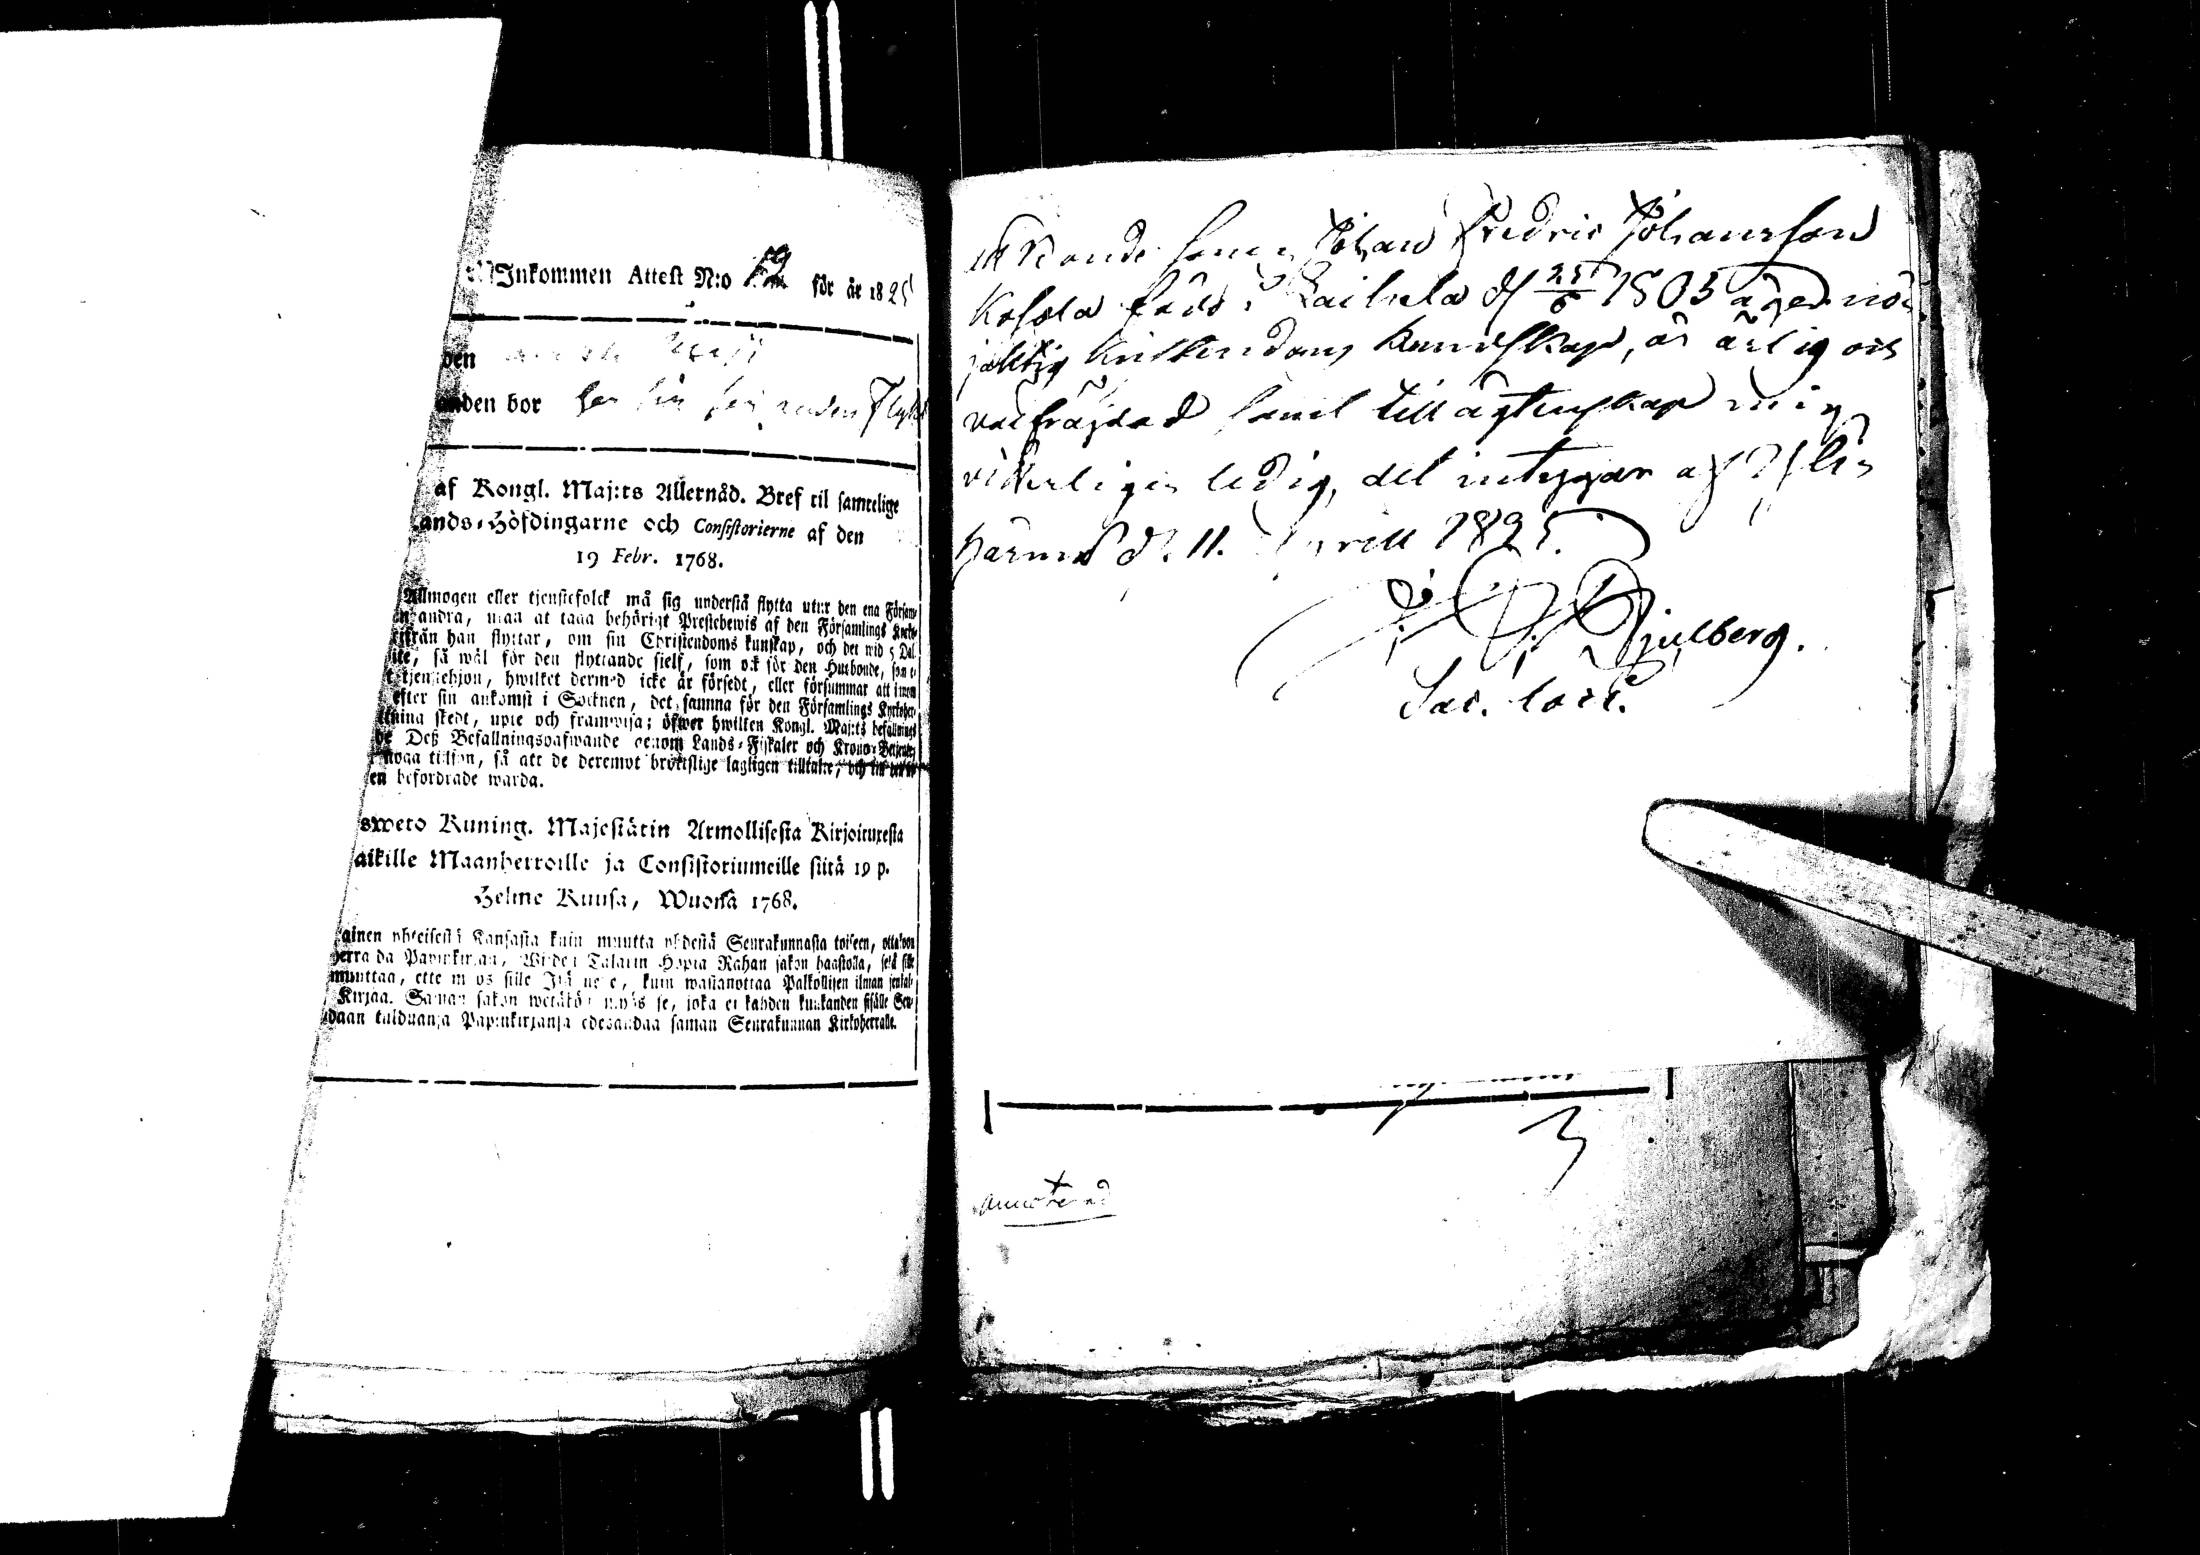 Inkommen Attest N:o 19 för år 1825
den
anden bor
af Kongl. Maj:ts Allernåd. Bref til samtelige
ands-Höfdingarne och Consistorierne af den
19 Febr. 1768.
Allmogen eller tjenstefolck må sig understå flytta utur den ena Försam-
andra, utan at taga behörigt Prestebewis af den Församlings Kyrko-
ifrån han flyttar, om sin Christendoms kunskap, och det wid 5 Dal.
ite, så wäl för den flyttande sielf, som ock för den Husbonde, som
tjenstehjon, hwilket dermed icke är försedt, eller försummar att innom
efter sin ankomst i Socknen, det samma för den Församlings Kyrkoher-
skedt, upte och framwisa; öfwer hwilken Kongl. Maj:ts befallnings
Deß Befallningshafwande genom Lands-Fiskaler och Krono-Betjente
noga tilsyn, så att de deremot brottslige lagligen tilltalte, och
en befordrade warda.
sweto Kuning. Majestätin Armollisesta Kirjoituxesta
aikille Maanherroille ja Consistoriumeille siitä 19 p.
Helme Kuusa, Wuonna 1768.
ainen yhteisestä Kansasta kuin muutta yhdestä Seurakunnasta toiseen, ottakoon
herralda Papinkirjan, Wijden Talarin Hopia Rahan sakon haastolla, sekä sille
muuttaa, ette myös sille Isännelle, kuin wastanottaa Palkollisen ilman
Kirjaa. Saman sakon wetäköön myös se, joka ei kahden kuukanden sisälle Seu-
daan tulduansa Papinkirjansa edesandaa saman Seurakunnan Kirkoherralle.
Bonde sonen Johan Fredric Johansson
Kosola född i Laihela d 25/6 1805 äger nö-
jaktig Kristendoms Kundskap, är ärlig och
välfrägdad samt till ägtenskap mig
vitterligen ledig, det intygar af Yli-
härmä d. 11. Aprill 1825.
Gjulberg.
Sac.
3
annoterad